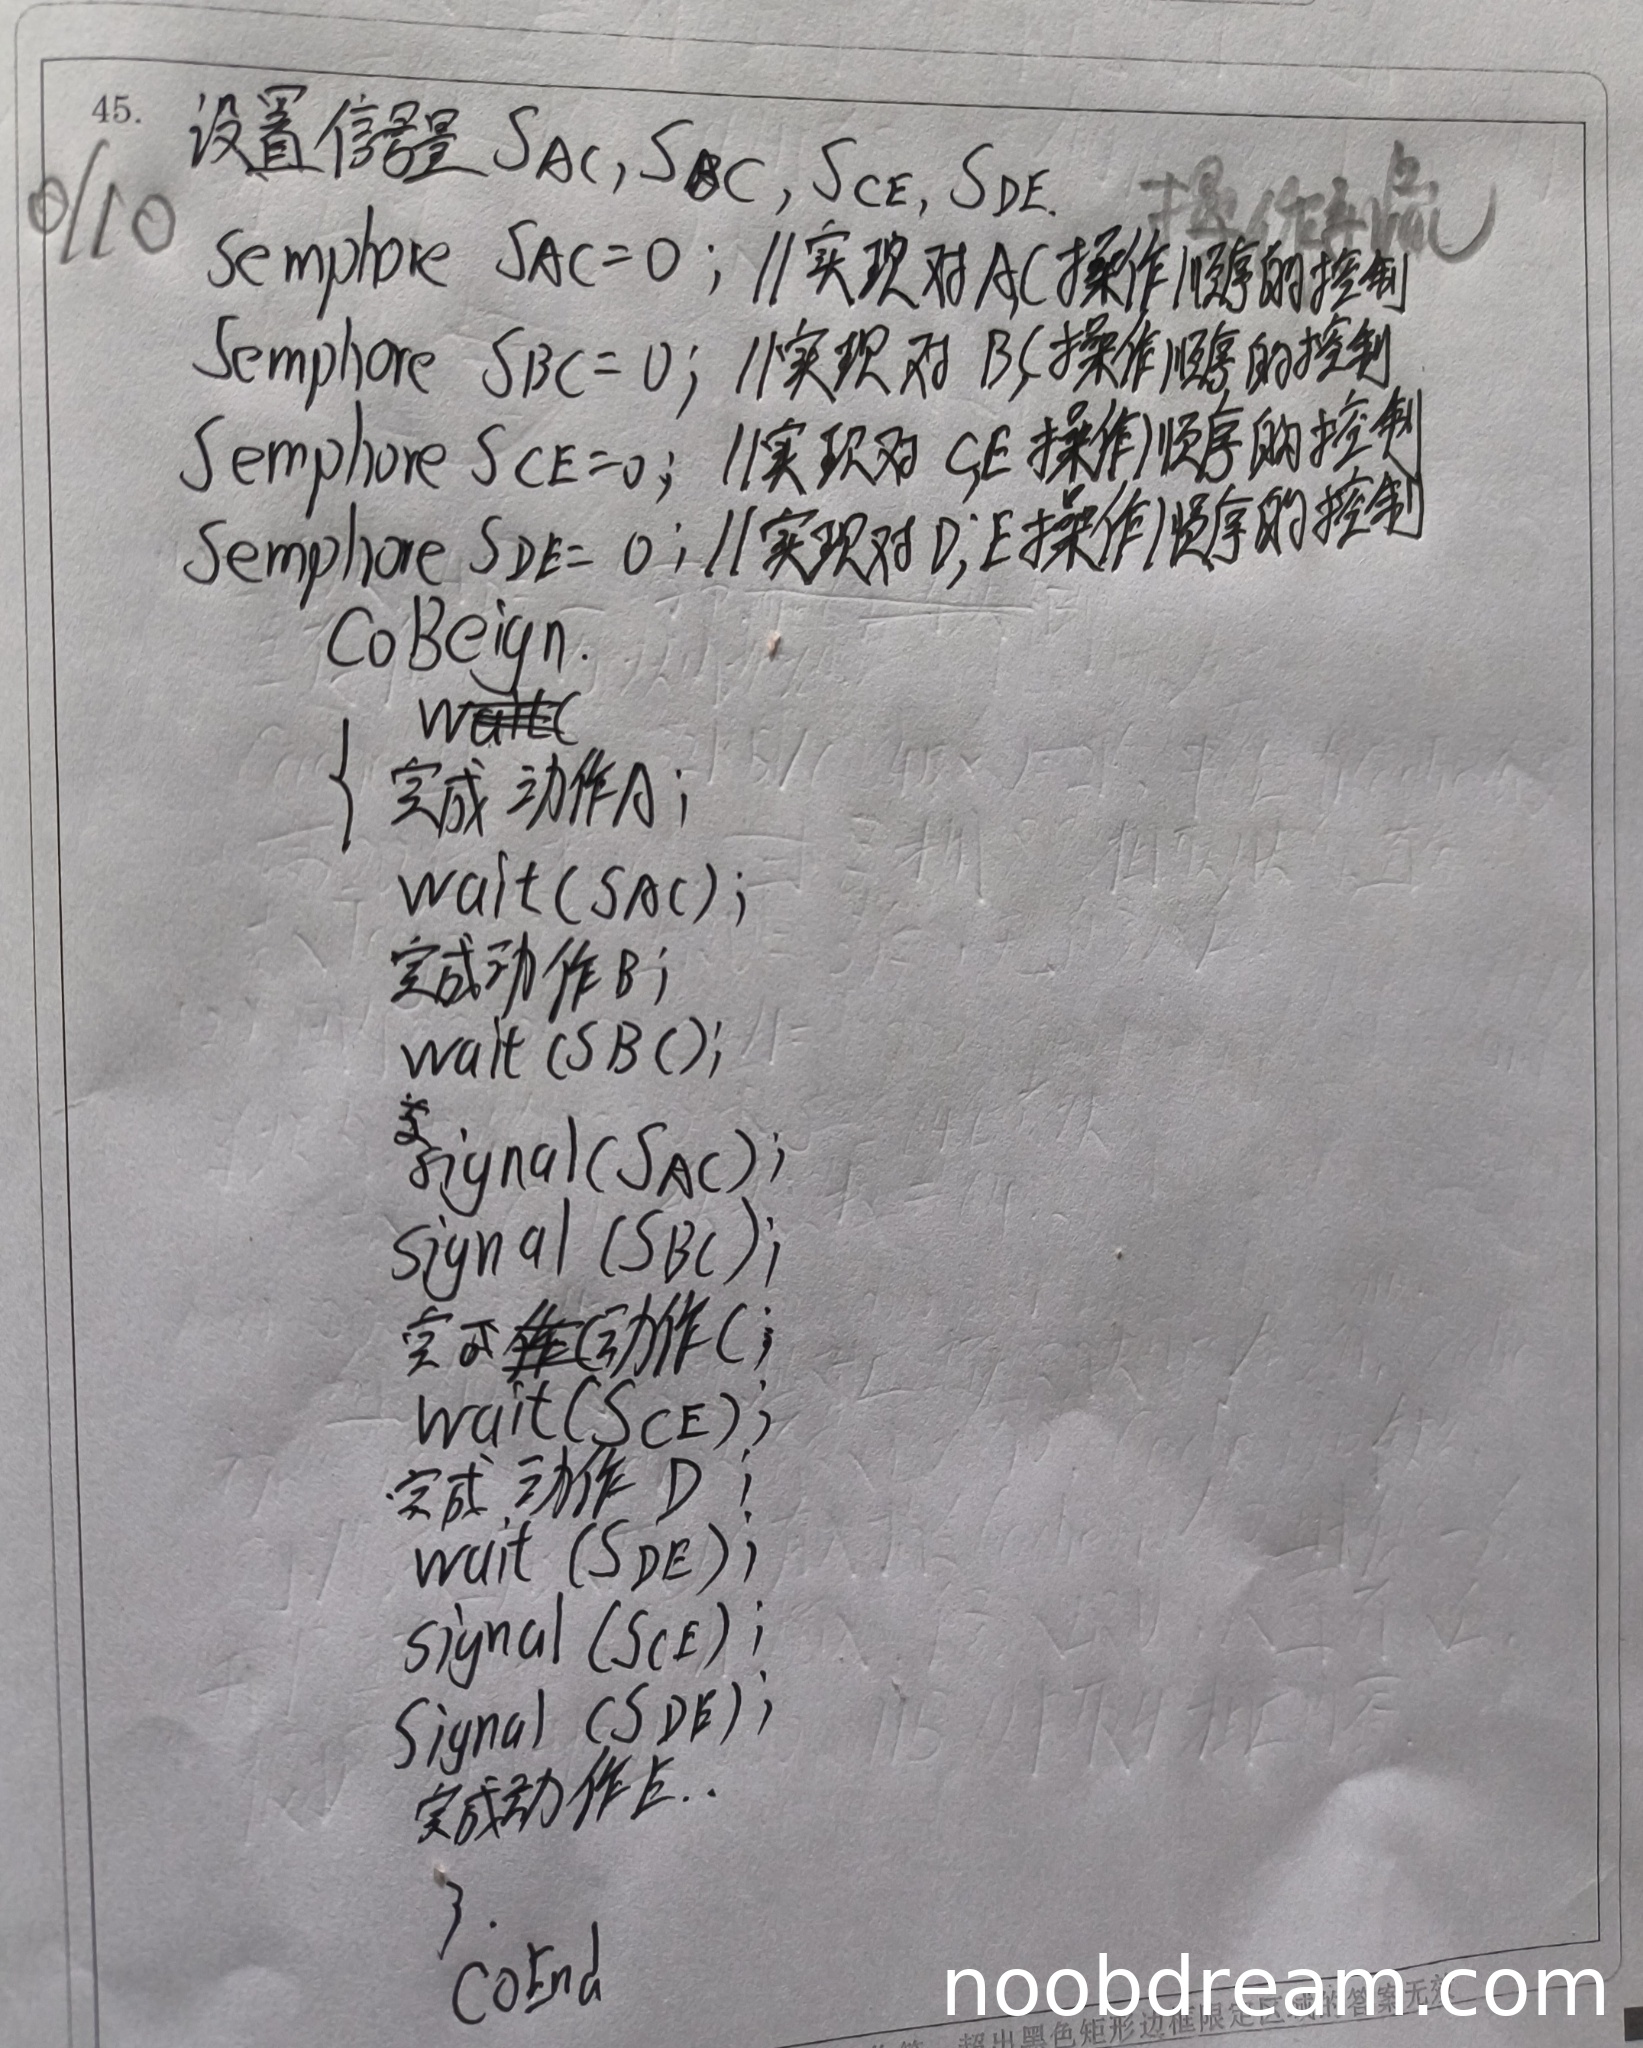 45. 设置信号量 SAC, SBC, SCE, SDE.
0/10
操作
Semphore SAC=0; //实现对A,C操作顺序的控制
Semphore SBC=0; //实现对B,C操作顺序的控制
Semphore SCE=0; //实现对C,E操作顺序的控制
Semphore SDE=0; //实现对D,E操作顺序的控制
CoBeign.
{
完成动作A;
wait(SAC);
完成动作B;
wait(SBC);
signal(SAC);
signal(SBC);
完成动作C;
wait(SCE);
完成动作D;
wait(SDE);
signal(SCE);
signal(SDE);
完成动作E..
}.
CoEnd
noobdream.com
超出黑色矩形边框限定区域的答案无效